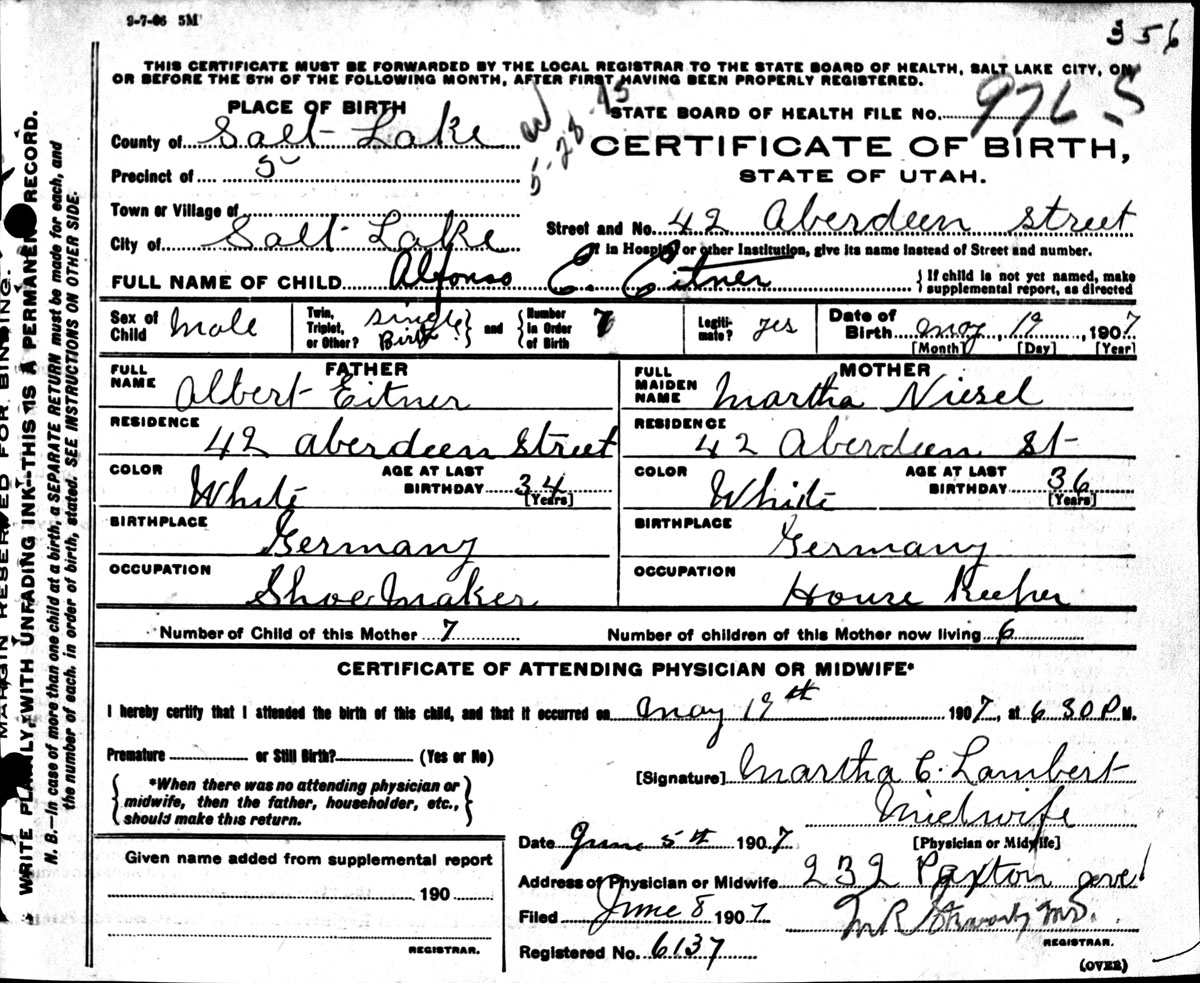 9-7-06 5M
356
THIS CERTIFICATE MUST BE FORWARDED BY THE LOCAL REGISTRAR TO THE STATE BOARD OF HEALTH, SALT LAKE CITY, ON
OR BEFORE THE 5TH OF THE FOLLOWING MONTH, AFTER FIRST HAVING BEEN PROPERLY REGISTERED.
PLACE OF BIRTH
STATE BOARD OF HEALTH FILE NO. 976 S
County of Salt Lake
CERTIFICATE OF BIRTH,
Precinct of 5
5-28-45
STATE OF UTAH.
Town or Village of
Street and No. 42 Aberdeen Street
City of Salt Lake
If in Hospital or other Institution, give its name instead of Street and number.
FULL NAME OF CHILD Alfonso E. Eitner
{ If child is not yet named, make supplemental report, as directed
Sex of Child Male
Twin, Triplet, or Other? Single Birth } and { Number in Order of Birth 7
Legitimate? yes
Date of Birth May 19, 1907
[Month] [Day] [Year]
FATHER
MOTHER
FULL NAME Albert Eitner
FULL MAIDEN NAME Martha Niesel
RESIDENCE 42 Aberdeen Street
RESIDENCE 42 Aberdeen St
COLOR White AGE AT LAST BIRTHDAY 34 [Years]
COLOR White AGE AT LAST BIRTHDAY 36 [Years]
BIRTHPLACE Germany
BIRTHPLACE Germany
OCCUPATION Shoe Maker
OCCUPATION House Keeper
Number of Child of this Mother 7
Number of children of this Mother now living 6
CERTIFICATE OF ATTENDING PHYSICIAN OR MIDWIFE*
I hereby certify that I attended the birth of this child, and that it occurred on May 19th 1907, at 6 30 P M.
Premature or Still Birth? (Yes or No)
[Signature] Martha C. Lambert
{ *When there was no attending physician or
midwife, then the father, householder, etc.,
should make this return. }
Midwife
[Physician or Midwife]
Date June 5th 1907
Address of Physician or Midwife 232 Paxton ave
Filed June 8 1907
M R Stewart MD.
REGISTRAR.
Registered No. 6137
(OVER)
Given name added from supplemental report
190
REGISTRAR.
MARGIN RESERVED FOR BINDING.
WRITE PLAINLY, WITH UNFADING INK--THIS IS A PERMANENT RECORD.
N. B.--In case of more than one child at a birth, a SEPARATE RETURN must be made for each, and
the number of each, in order of birth, stated. SEE INSTRUCTIONS ON OTHER SIDE.